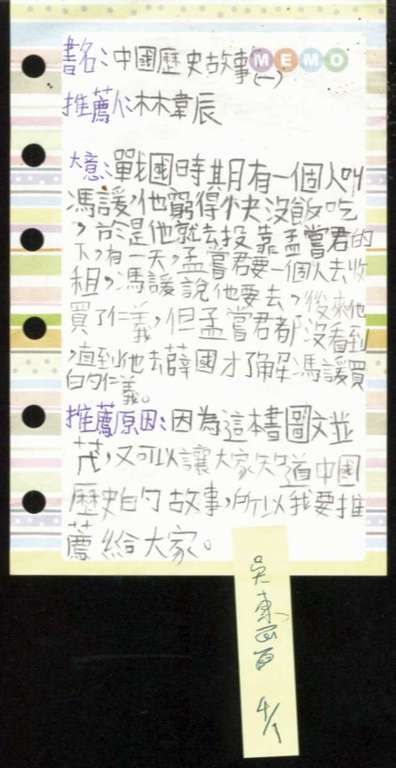 書名:中國歷史故事(一)
MEMO
推薦人:林韋辰
大意:戰國時期有一個人叫
馮諼,他窮得快沒飯吃
,於是他就去投靠孟嘗君的
下,有一天,孟嘗君要一個人去收
租,馮諼說他要去,後來他
買了仁義,但孟嘗君都沒看到
,直到他去薛國才了解馮諼買
的仁義。
推薦原因:因為這本書圖文並
茂,又可以讓大家知道中國
歷史的故事,所以我要推
薦給大家。
吳東
4/1